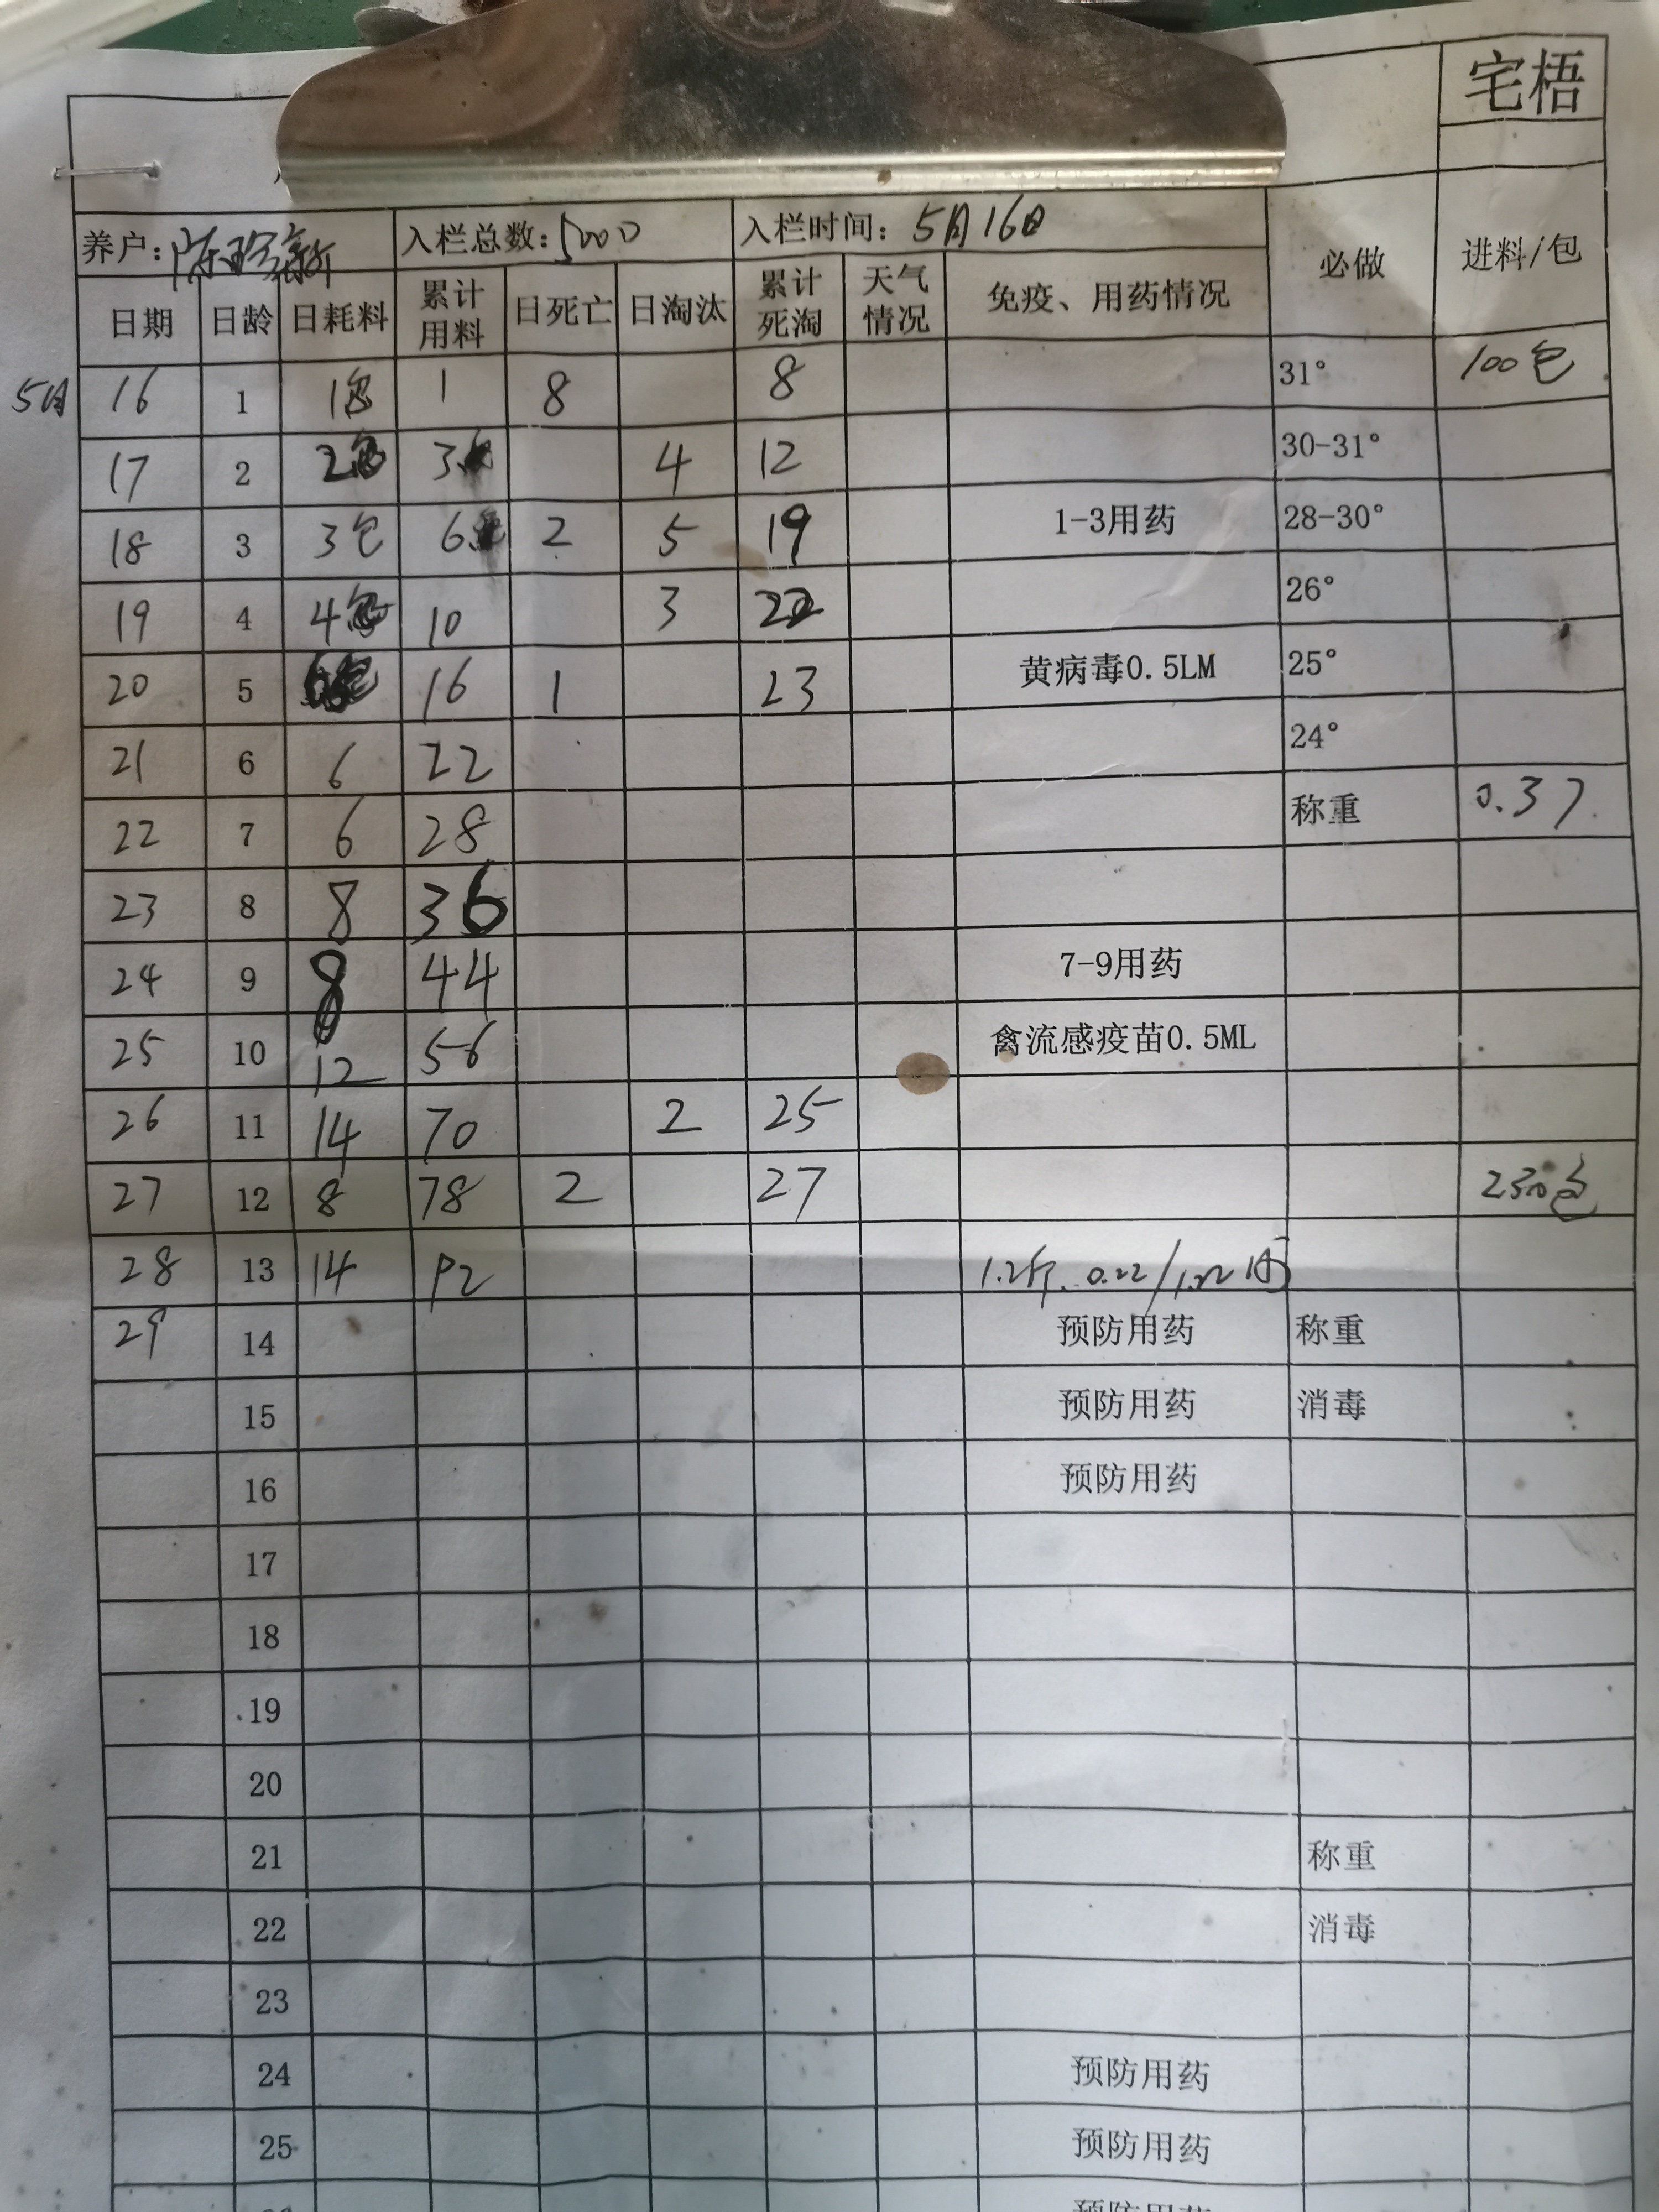 宅梧
养户: 陈珍新 入栏总数: 5000 入栏时间: 5月16日 必做 进料/包
日期 日龄 日耗料 累计用料 日死亡 日淘汰 累计死淘 天气情况 免疫、用药情况
5月 16 1 1包 1 8 8 31° 100包
17 2 2包 3 4 12 30-31°
18 3 3包 6 2 5 19 1-3用药 28-30°
19 4 4包 10 3 22 26°
20 5 16 1 23 黄病毒0.5LM 25°
21 6 6 22 24°
22 7 6 28 称重 0.37
23 8 8 36
24 9 8 44 7-9用药
25 10 12 56 禽流感疫苗0.5ML
26 11 14 70 2 25
27 12 8 78 2 27
28 13 14 92
29 14 预防用药 称重
15 预防用药 消毒
16 预防用药
17
18
19
20
21 称重
22 消毒
23
24 预防用药
25 预防用药
预防用药